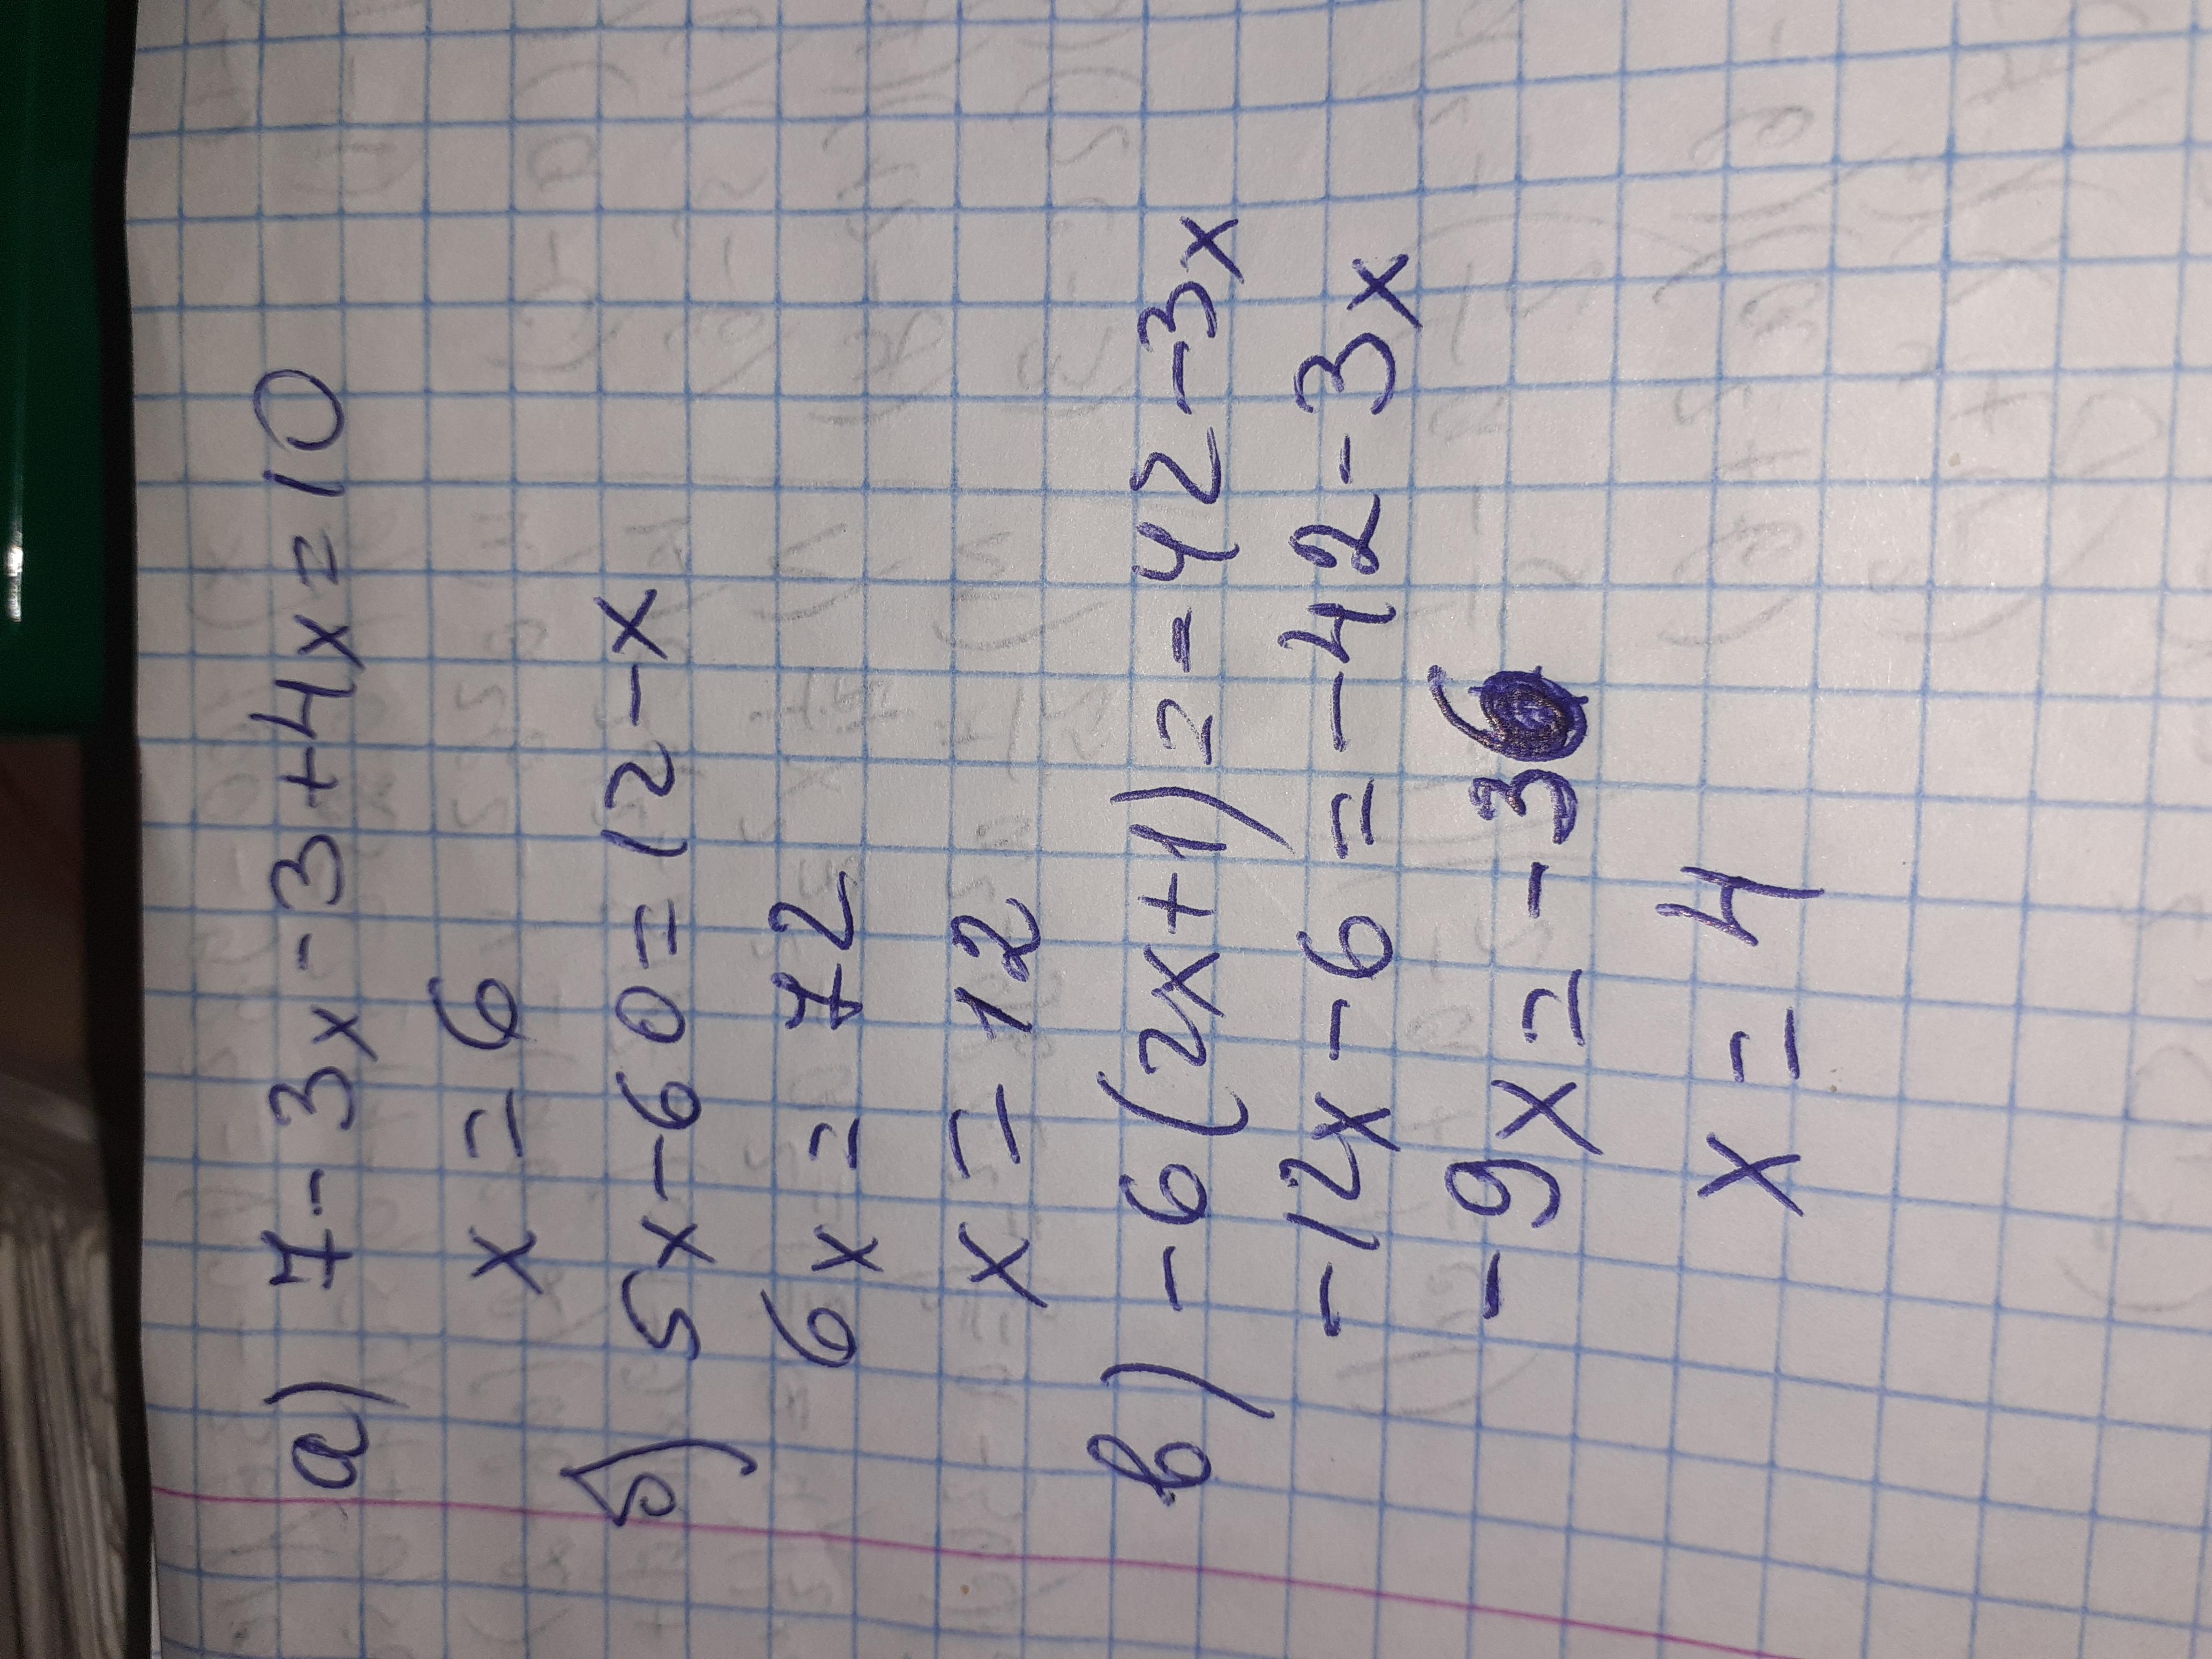 а) 7-3x-3+4x=10
x=6
б) 5x-60=12-x
6x=72
x=12
в) -6(2x+1)=-42-3x
-12x-6=-42-3x
-9x=-36
x=4